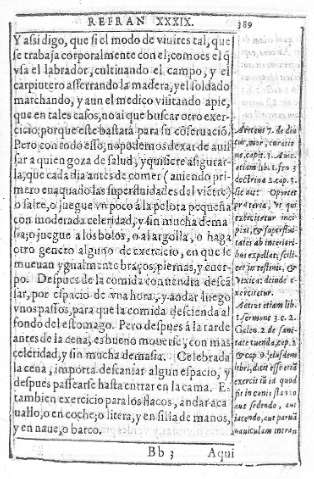 REFRAN XXXIX.
389
Y assi digo, que si el modo de viuir es tal, que
se trabaja corporalmente con el; como es el q̃
vsa el labrador, cultiuando el campo, y el
carpintero asserrando la madera, y el soldado
marchando, y aun el medico visitando a pie,
que en tales casos, no ai que buscar otro exer-
cicio; porque este bastarà para su cõseruaciõ.
Pero con todo esso, no podemos dexar de aui-
sar a quien goza de salud; y quisiere assegurar-
la; que cada dia antes de comer (auiendo pri-
mero euaquado las superfluidades del viētre)
o salte, o juegue vn poco à la pelota pequeña
con moderada celeridad, y sin mucha dema-
sia; o juegue a los bolos, o al argolla, o haga
otro genero alguno de exercicio, en que se
mueuan ygualmente braços, piernas, y cuer-
po. Despues de la comida conuendrà descã-
sar, por espacio de vna hora, y andar luego
vnos passos, para que la comida descienda al
fondo del estomago. Pero despues à la tarde
antes de la cena, es bueno mouerse, con mas
celeridad, y sin mucha demasia. Celebrada
la cena, importa descansar algun espacio, y
despues passearse hasta entrar en la cama. Es
tambien exercicio para los flacos, andar a ca
uallo, o en coche; o litera, y en silla de manos,
y en naue, o barco.
Bb 3 Aqui
Aetius 7. de diu
tur. mor. curatio
nis, capit. 3. Auic.
etiam lib. 1. fen 3
doctrina 2. cap. 2.
sic ait: Oportet
præterea, vt qui
exercitetur inci-
piat, & superflui-
tates ab interiori-
bus expellat, scili-
cet in testinis, &
vexica: deinde e-
xercitetur.
Aetius etiam lib.
1. sermone 3. c. 2.
Galen. 2. de sani-
tate tuenda, cap. 2
& cap. 9. eiusdem
libri, dicit esse etiã
exercitiũ id quod
fit in
que sedendo, aut
iacendo, aut parua
nauiculam intran